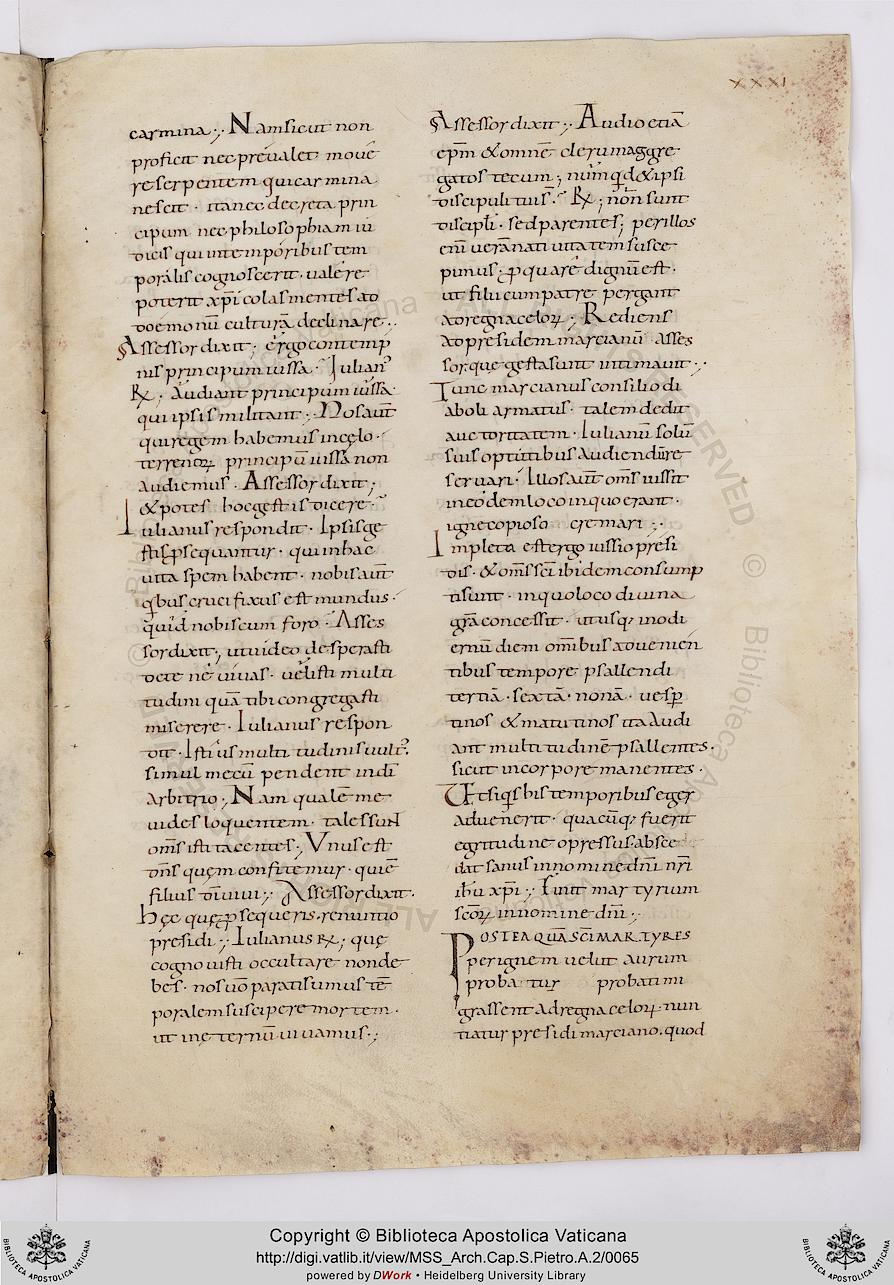 XXXI
carmina ; Nam sicut non
proficit nec prevalet movē
re serpentem qui carmina
nescit · ita nec decreta prin
cipum nec philosophiam iu
dicis qui in temporibus tem
poralis cognoscerit · valere
poterit xp̄icolas mentes ad
doemonū culturā declinare ;
Assessor dixit ; ergo contemp
nis principum iussa · Iulian᾽
R̷ ; Audiant principum iussa
qui ipsis militant ; Nos aūt
qui regem habemus in celo ·
terrenoꝝ principū iussa non
audiemus · Assessor dixit ;
& potes hoc gestis dicere ·
Iulianus respondit · Ipsis ge
stis ꝑsequantur · qui in hac
vita spem habent · nobis aūt
qͥbus crucifixus est mundus ·
quid nobis cum foro · Asses
sor dixit ; ut video desperasti
de te ne vivas · vel isti multi
tudini quā tibi congregasti
miserere · Iulianus respon
dit · Istius multitudinis vult᾽
simul mecū pendent in dī
arbitrio ; Nam quale me
vides loquentem · tales suɴt
om̄s isti tacentes ; Unus est
dn̄s quem confitemur · quiē
filius dī vivi ; Assessor dixit ·
Hęc quę ꝑsequeris · renuntio
presidi ; Iulianus R̷ ; quę
cognovisti occultare non de
bes · nos uō parati sumus tē
poralem suscipere mortem ·
ut in ęternū vivamus ;
Assessor dixit ; Audio etiā
ep̄m & omnē clerū maggre
gatos tecum ; nūmqͥd & ipsi
discipuli tui s̄ · R̷ ; nōn sunt
discipl̄i · sed parentes ; per illos
enī veram nati vitatem susce
pimus · ꝓ quare dignū est ·
ut filii cum patre pergant
ad regna celoꝝ ; Rediens
ad presidem marcianū asses
sor · que gesta sunt intimavit ;
Tunc marcianus consilio di
aboli armatus · talem dedit
auctoritatem · Iulianū solū
suis optutibus audiendū re
servari · Illos aūt om̄s iussit
in eodem loco in quo erant ·
igne copioso cremari ;
Impleta est ergo iussio presi
dis · & om̄s sc̄i ibidem consump
ti sunt · in quo loco divina
grā concessit · ut usqꝫ in odi
ernū diem om̄ibus advenien
tibus tempore psallendi
tertiā · sextā · nonā · vesꝑ
tinos & matutinos ita audi
ant multitudinē psallentes ·
sicut in corpore manentes ·
Et si qͥs his temporibus eger
advenerit · quacūqꝫ fuerit
egritudine opressus · absce
dat sanus in nomine dn̄i nr̄i
ih̄u xp̄i ; Finit martyrium
sc̄oꝝ in nomine dn̄i ;
POSTEA QUĀ SC̄I MARTYRES
per ignem velut aurum
probatur probati mi
grassent ad regna celoꝝ · nun
tiatur presidi marciano · quod
Copyright © Biblioteca Apostolica Vaticana
http://digi.vatlib.it/view/MSS_Arch.Cap.S.Pietro.A.2/0065
powered by DWork • Heidelberg University Library